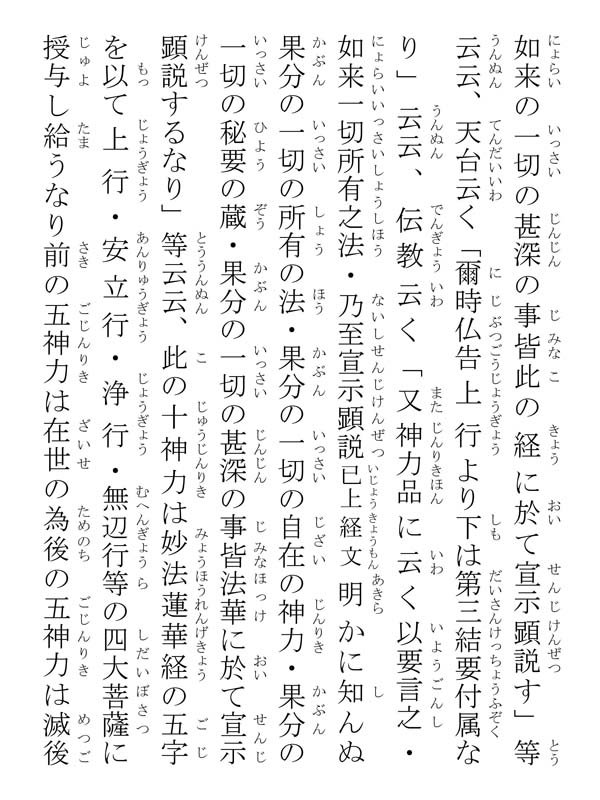 如来の一切の甚深の事皆此の経に於て宣示顕説す」等
云云、天台云く「爾時仏告上行より下は第三結要付属な
り」云云、伝教云く「又神力品に云く以要言之・
如来一切所有之法・乃至宣示顕説已上経文明かに知んぬ
果分の一切の所有の法・果分の一切の自在の神力・果分の
一切の秘要の蔵・果分の一切の甚深の事皆法華に於て宣示
顕説するなり」等云云、此の十神力は妙法蓮華経の五字
を以て上行・安立行・浄行・無辺行等の四大菩薩に
授与し給うなり前の五神力は在世の為後の五神力は滅後